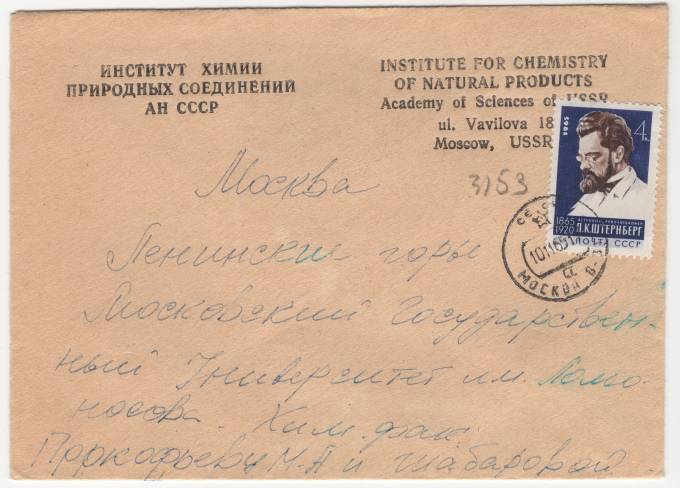 ИНСТИТУТ ХИМИИ
ПРИРОДНЫХ СОЕДИНЕНИЙ
АН СССР
INSTITUTE FOR CHEMISTRY
OF NATURAL PRODUCTS
Academy of Sciences of USSR
ul. Vavilova 18
Moscow, USSR
1965
4к.
1865
1920
П.К.ШТЕРНБЕРГ
ПОЧТА СССР
3153
МОСКВА
Москва
Ленинские горы
Московский Государствен-
ный Университет им. Ломо-
носова. Хим. фак.
Прокофьеву М.А и Шабаровой